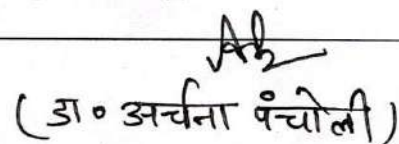 (डा० अर्चना पंचोली)